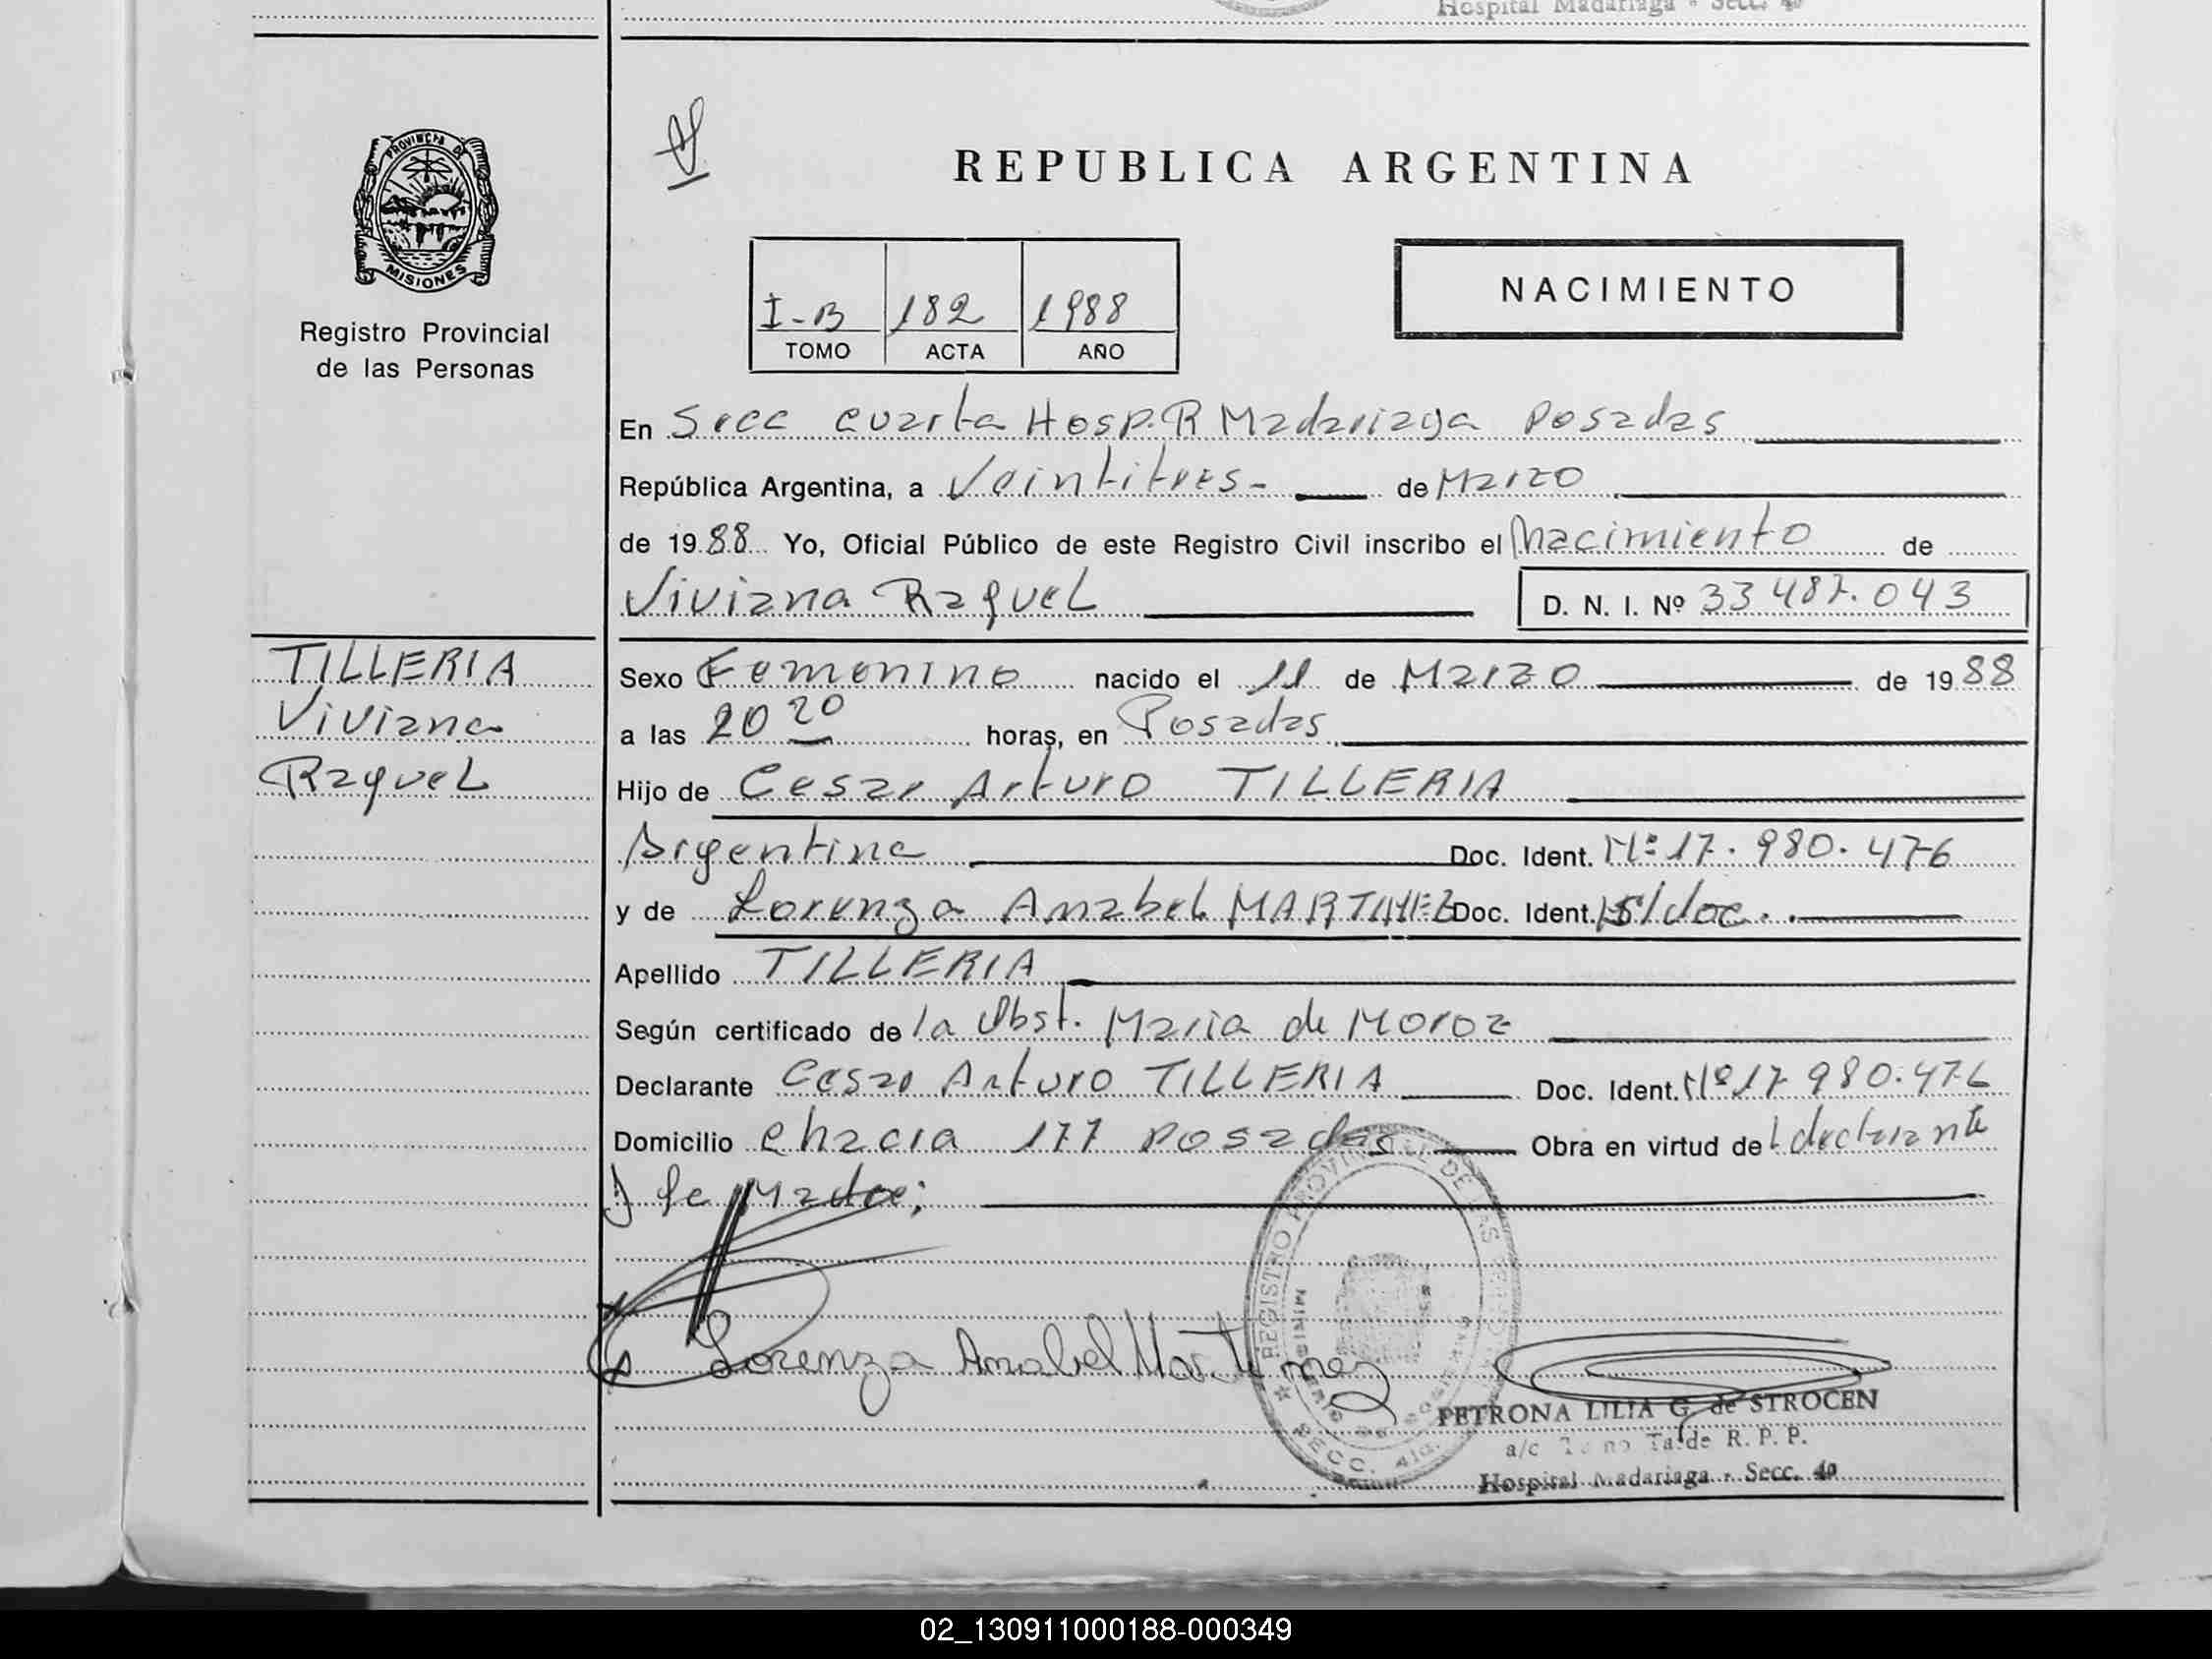 Hospital Madariaga - Secc. 4ª
PROVINCIA DE
MISIONES
Registro Provincial
de las Personas
REPUBLICA ARGENTINA
NACIMIENTO
I-B 182 1988
TOMO ACTA AÑO
En Secc cuarta Hosp. R Madariaga Posadas
República Argentina, a Veintitres - de Marzo
de 1988 Yo, Oficial Público de este Registro Civil inscribo el Nacimiento de
Viviana Raquel D. N. I. Nº 33 487.043
TILLERIA
Viviana
Raquel
Sexo Femenino nacido el 11 de Marzo de 1988
a las 20 20 horas, en Posadas
Hijo de Cesar Arturo TILLERIA
Argentina Doc. Ident. Nº 17.980.476
y de Lorenza Anabel MARTINEZ Doc. Ident. s/doc.
Apellido TILLERIA
Según certificado de la Obst. Maria de Moroz
Declarante Cesar Arturo TILLERIA Doc. Ident. Nº 17 980.476
Domicilio Chacra 177 Posadas Obra en virtud de l declarante
y la Madre;
Lorenza Anabel Martinez
REGISTRO PROVINCIAL DE LAS
SECC. 4ta.
PETRONA LILIA G. de STROCEN
a/c Turno Tarde R. P. P.
Hospital Madariaga - Secc. 4ª
02_130911000188-000349